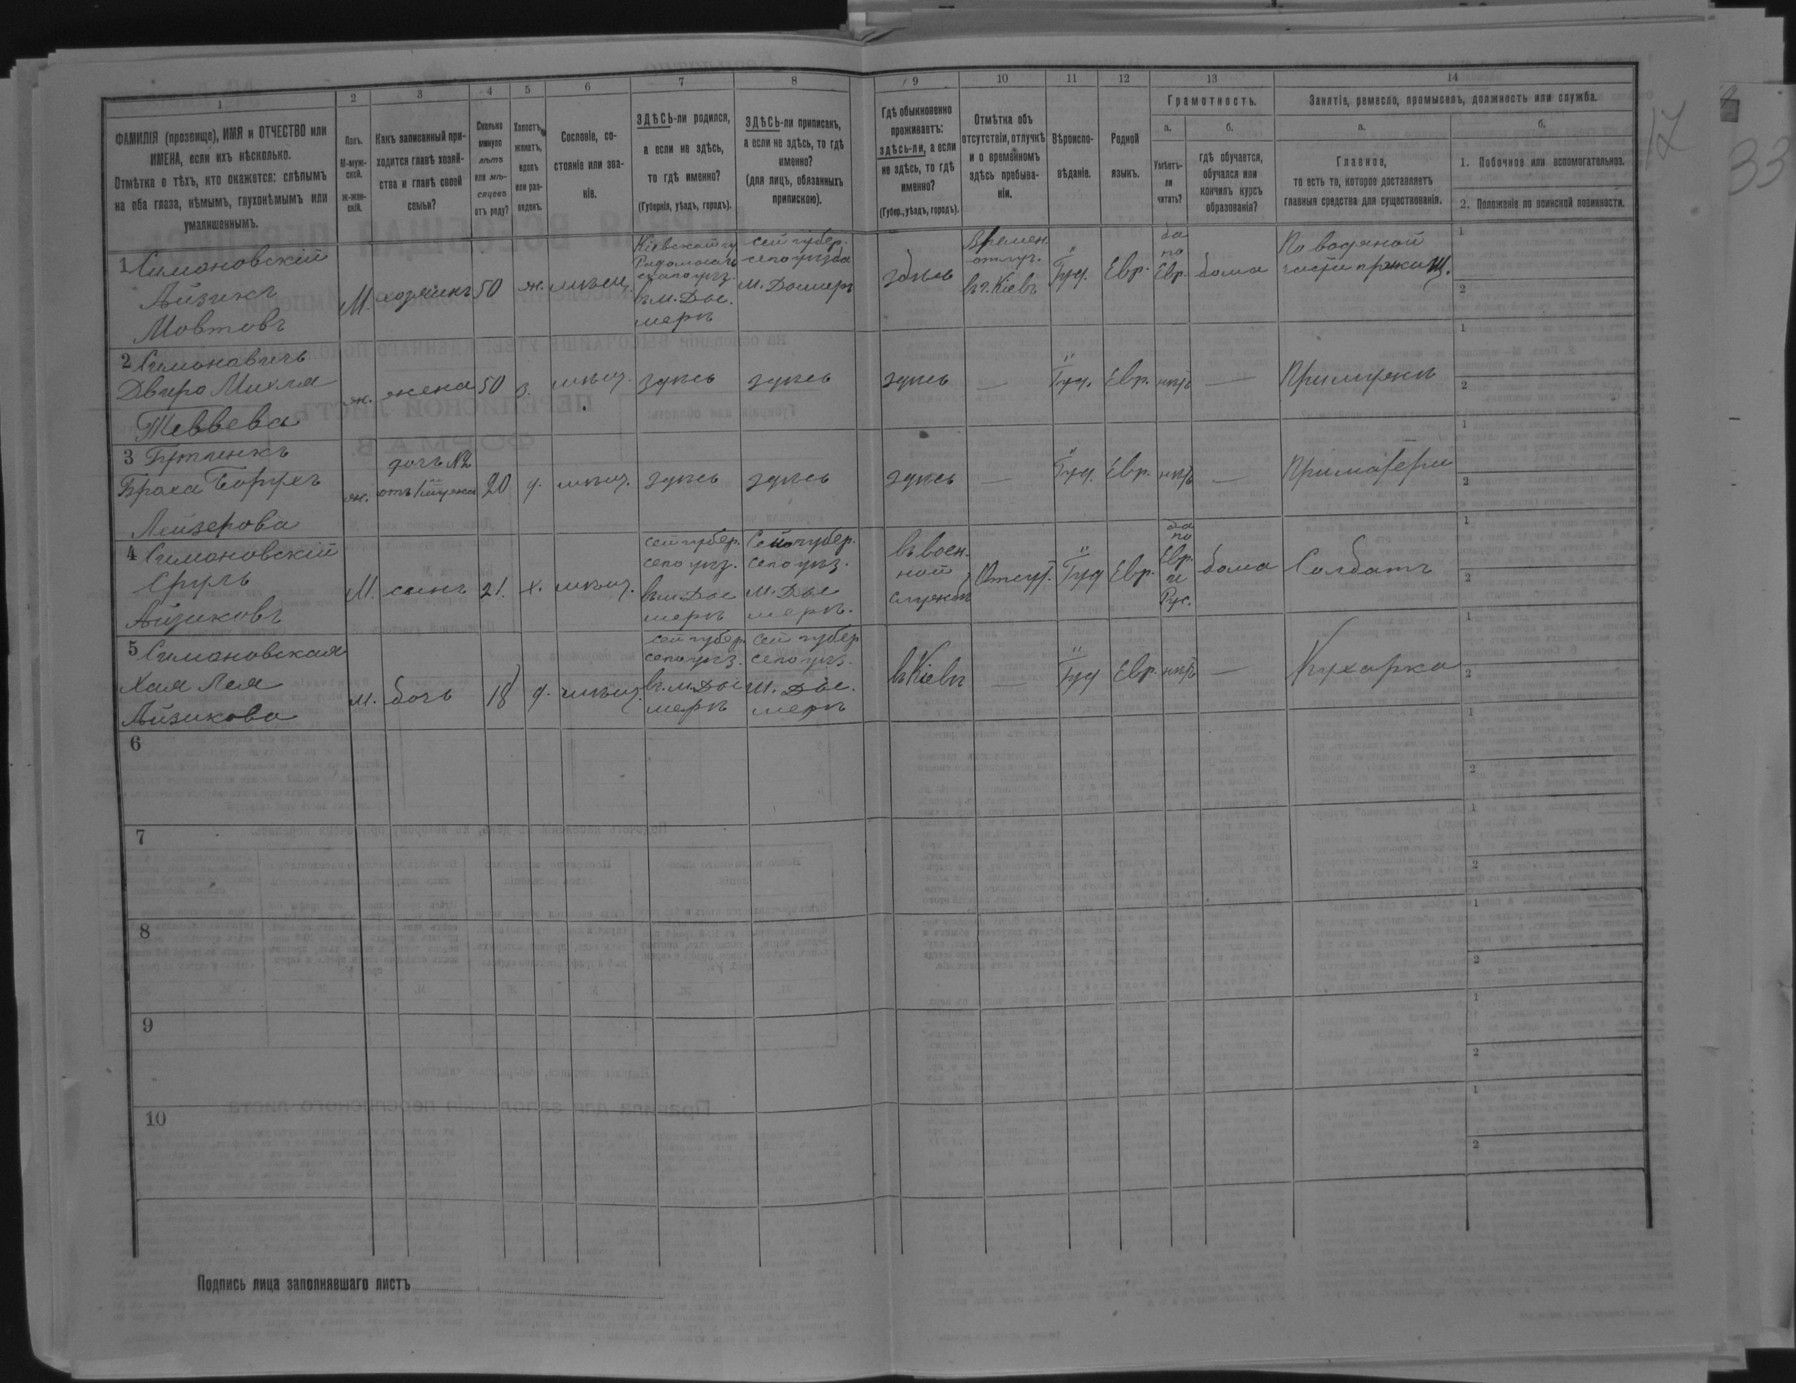 1
2
3
4
5
6
7
8
9
10
11
12
13
14
ФАМИЛІЯ (прозвище), ИМЯ и ОТЧЕСТВО или
ИМЕНА, если ихъ нѣсколько.
Отмѣтка о тѣхъ, кто окажется: слѣпымъ
на оба глаза, нѣмымъ, глухонѣмымъ или
умалишеннымъ.
Полъ.
М-муж-
ской.
Ж-жен-
скій.
Какъ записанный при-
ходится главѣ хозяй-
ства и главѣ своей
семьи?
Сколько
минуло
лѣтъ
или мѣ-
сяцевъ
отъ роду?
Холостъ,
женатъ,
вдовъ
или раз-
веденъ.
Сословіе, со-
стояніе или зва-
ніе.
ЗДѢСЬ-ли родился,
а если не здѣсь,
то гдѣ именно?
(Губернія, уѣздъ, городъ).
ЗДѢСЬ-ли приписанъ,
а если не здѣсь, то гдѣ
именно?
(для лицъ, обязанныхъ
припискою).
Гдѣ обыкновенно
проживаетъ:
здѣсь-ли, а если
не здѣсь, то гдѣ
именно?
(Губер., уѣздъ, городъ).
Отмѣтка объ
отсутствіи, отлучкѣ
и о временномъ
здѣсь пребыва-
ніи.
Вѣроиспо-
вѣданіе.
Родной
языкъ.
Грамотность.
а.
б.
Умѣетъ-
ли
читать?
гдѣ обучается,
обучался или
кончилъ курсъ
образованія?
Занятіе, ремесло, промыселъ, должность или служба.
а.
б.
Главное,
то есть то, которое доставляетъ
главныя средства для существованія.
1. Побочное или вспомогательное.
2. Положеніе по воинской повинности.
17
33
1 Симановскій
Айзикъ
Мовтовъ
М. хозяинъ 50 ж. мѣщ.
м. Дымеръ
Времен.
въ г. Кіевѣ
Іуд. Евр.
да
по
Евр. дома
По водяной
1
2
2 Симановичъ
Двира Михля
Теввева
ж. жена 50 з. мѣщ. здѣсь здѣсь здѣсь — Іуд. Евр. нѣтъ — При мужѣ
1
2
3
Браха Борухъ
Лейзерова
ж. 20 д. мѣщ. здѣсь здѣсь здѣсь — Іуд. Евр. нѣтъ — При матери
1
2
4 Симановскій
Сруль
Айзиковъ
М. сынъ 21. х. мѣщ.
сей губер.
въ м. Ды
меръ
м. Ды
меръ.
въ воен.
ной
службѣ
Отсут. Іуд Евр.
да
по
Евр.
и
Рус.
дома Солдатъ
1
2
5 Симановская
Хая Лея
Айзикова
м. дочь 18 д. мѣщ.
сей губер.
въ м. Ды
меръ
сей губер
м. Ды.
меръ
въ Кіевѣ — Іуд Евр. нѣтъ — Кухарка
1
2
6
1
2
7
1
2
8
1
2
9
1
2
10
1
2
Подпись лица заполнявшаго листъ